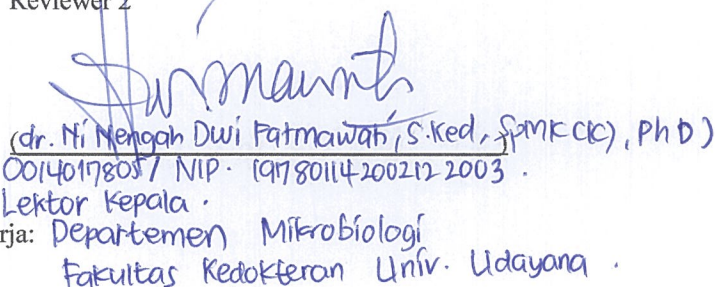 Reviewer 2
(dr. Ni Nengah Dwi Fatmawati, S.Ked, SpMK(K), PhD)
0014017805 / NIP. 197801142002122003.
Lektor Kepala.
rja: Departemen Mikrobiologi
Fakultas Kedokteran Univ. Udayana.